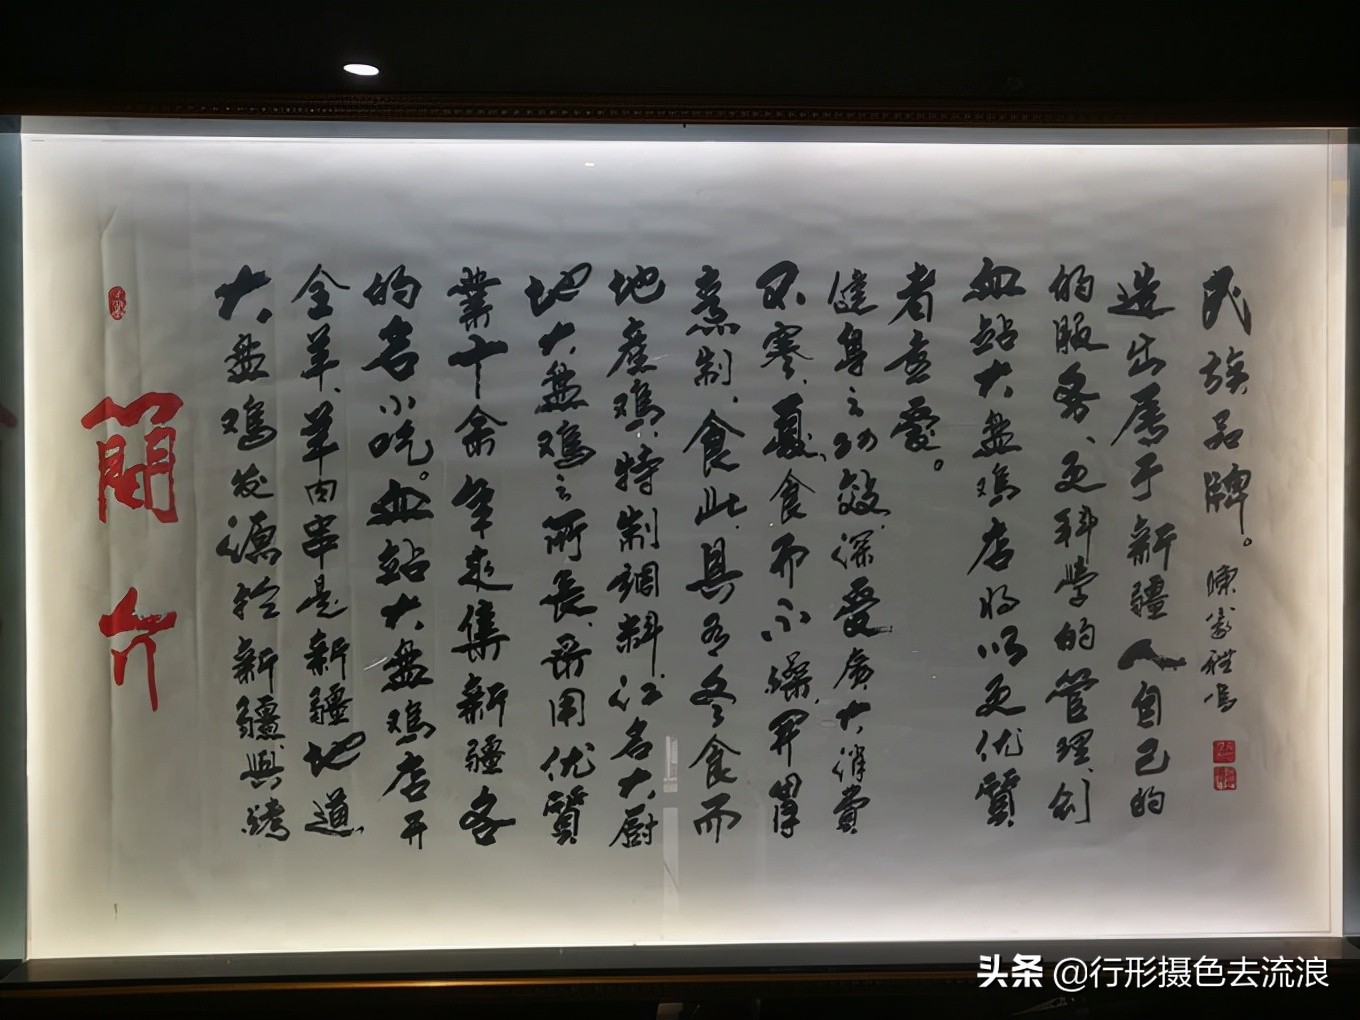 簡介
大盘鸡发源於新疆，與烤
全羊、羊肉串是新疆地道
的名小吃。血站大盘鸡店开
業十余年来集新疆各
地大盘鸡之所長，采用优質
地產鸡，特制调料，江名大厨
烹制，食此，具有冬食而
不寒，夏食而不燥，开胃
健身之功效，深受廣大消費
者喜愛。
血站大盘鸡店将以更优質
的服务、更科学的管理，创
造出属于新疆人自己的
民族品牌。
头条 @行形摄色去流浪